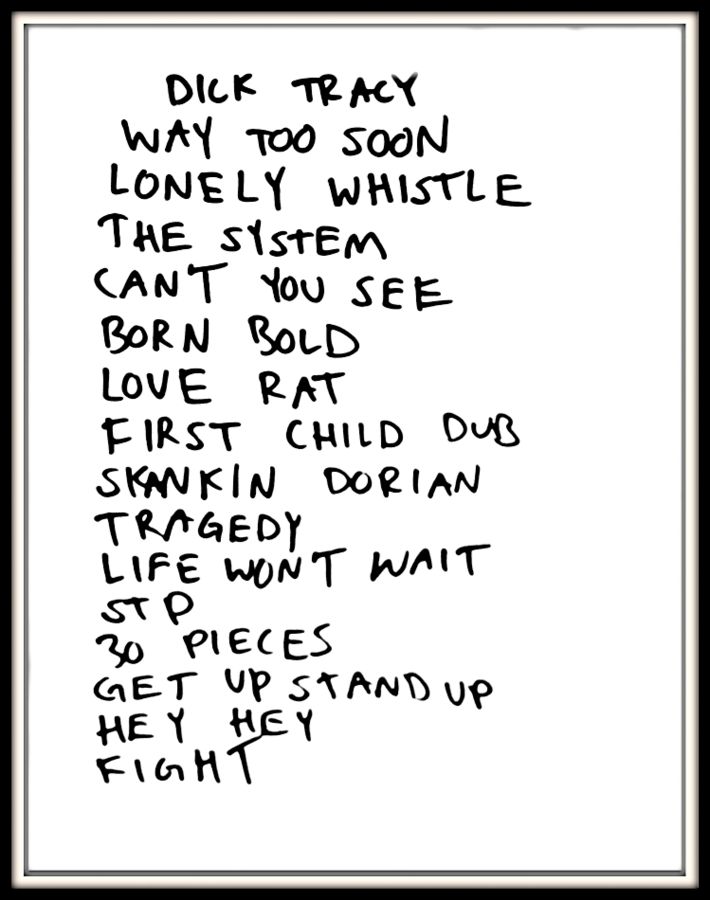 DICK TRACY
WAY TOO SOON
LONELY WHISTLE
THE SYSTEM
CANT YOU SEE
BORN BOLD
LOVE RAT
FIRST CHILD DUB
SKANKIN DORIAN
TRAGEDY
LIFE WONT WAIT
STP
30 PIECES
GET UP STAND UP
HEY HEY
FIGHT